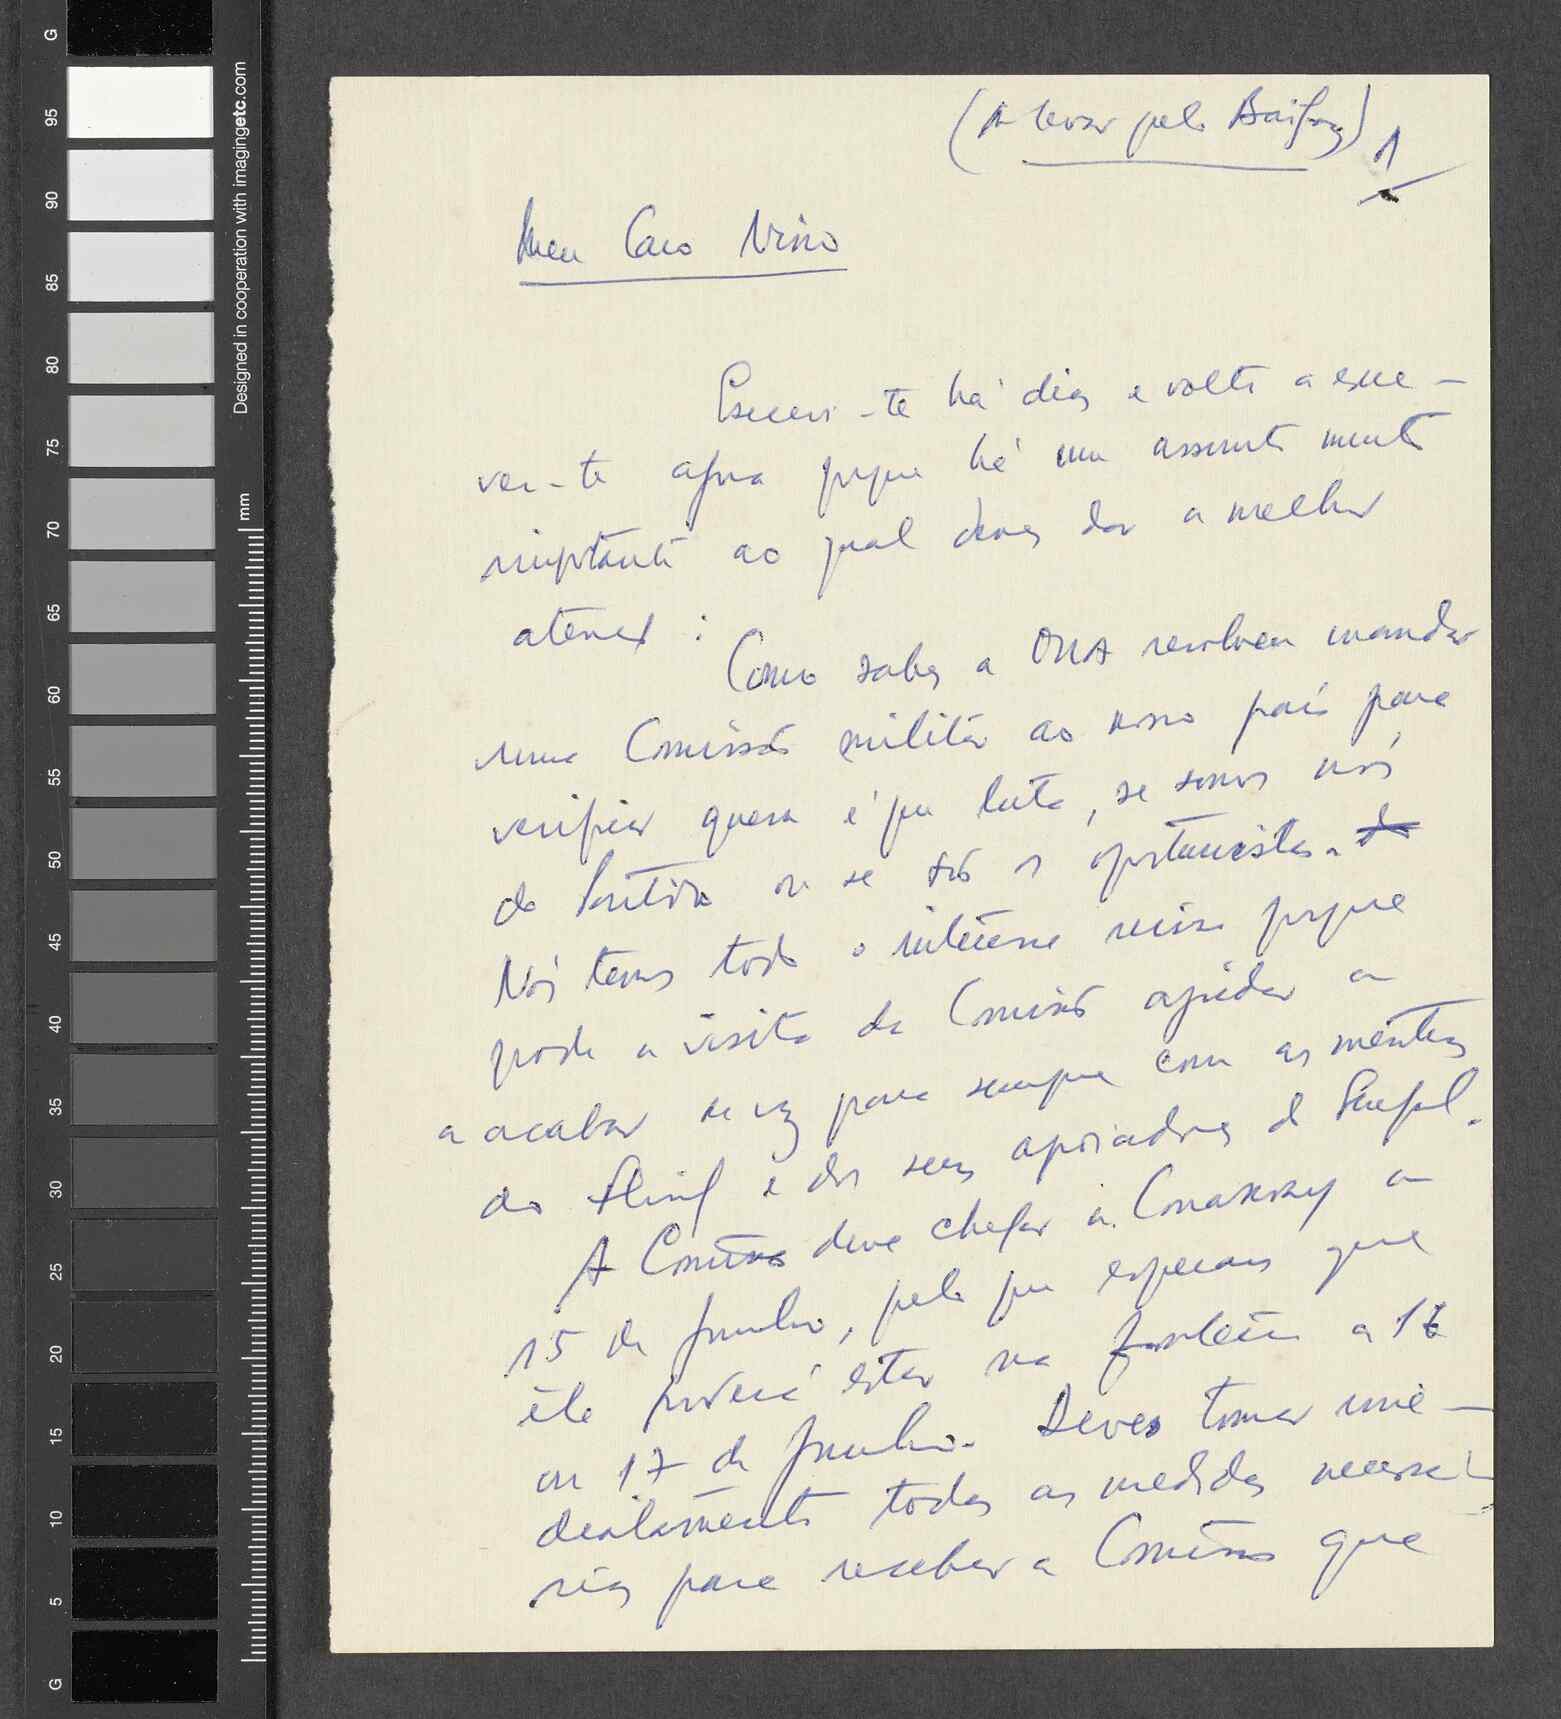 (A levar pelo Baifaz)
1
Meu Caro Nino
Escrevi-te há dias e volto a escre-
ver-te agora porque há um assunto muito
importante ao qual deves dar a melhor
atenção :
Como sabes a OUA resolveu mandar
uma Comissão militar ao nosso país para
verificar quem é que luta, se somos nós
do Partido ou se são os oportunistas.
Nós temos todo o interesse nisso porque
pode a visita da Comissão ajudar a
a acabar de vez para sempre com as mentiras
do Fling e dos seus apoiadores do Senegal.
A Comissão deve chegar a Conakry a
15 de Junho, pelo que esperamos que
ela poderá estar na fronteira a 16
ou 17 de Junho. Deves tomar ime-
diatamente todas as medidas necessá-
rias para receber a Comissão que
G
95
90
85
80
75
70
65
60
55
50
45
40
35
30
25
20
15
10
5
G
Designed in cooperation with imagingetc.com
mm